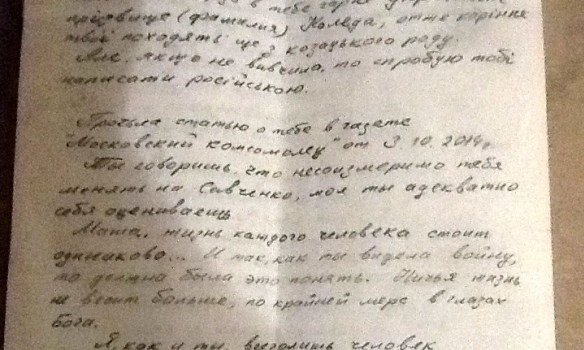 в тебе гарне
прізвище (фамилия) Коледа, отже коріння
твої походять ще з козацького роду.
Але, якщо не вивчила, то спробую тобі
написати російською.
Прочла статью о тебе в газете
"Московский комсомолец" от 3.10.2014г
Ты говоришь, что несоизмеримо тебя
менять на Савченко, мол ты адекватно
себя оцениваешь.
Маша, жизнь каждого человека стоит
одинаково... И так, как ты видела войну,
то должна была это понять. Ничья жизнь
не весит больше, по крайней мере в глазах
Бога.
Я, как и ты, человек